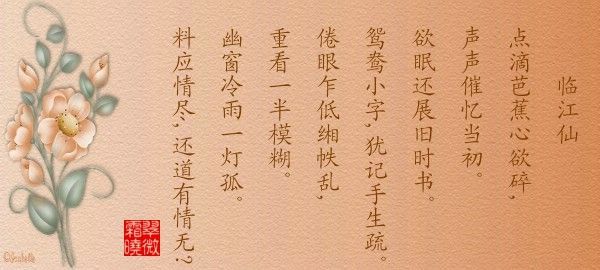 临江仙
点滴芭蕉心欲碎,
声声催忆当初。
欲眠还展旧时书。
鸳鸯小字,犹记手生疏。
倦眼乍低缃帙乱,
重看一半模糊。
幽窗冷雨一灯孤。
料应情尽,还道有情无?
翠微
霜晓